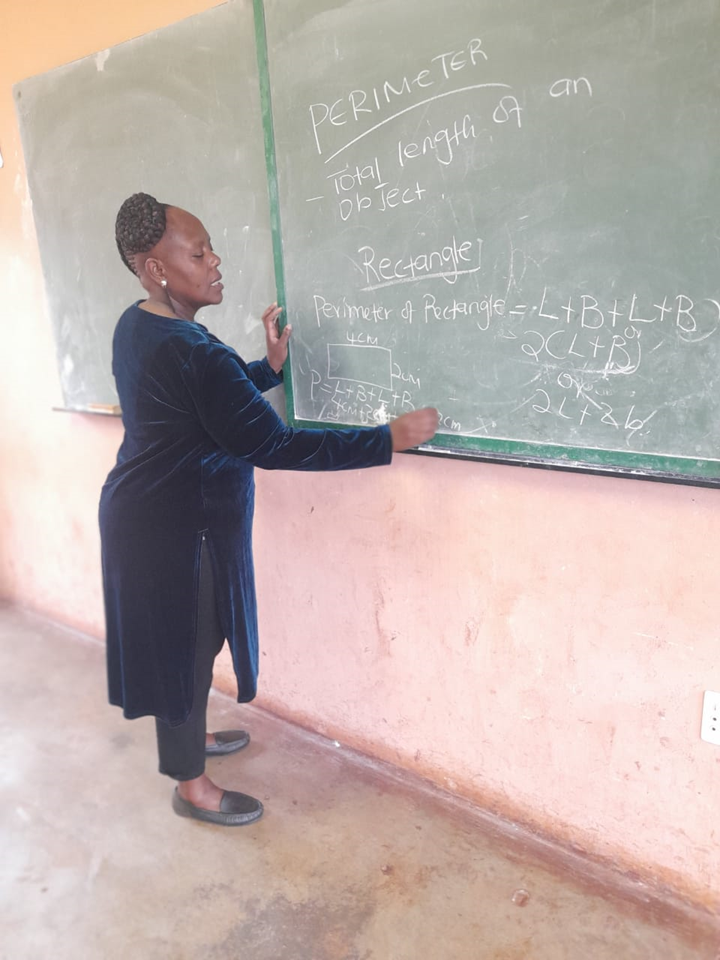 PERIMETER
- Total length of an
object.
Rectangle
Perimeter of Rectangle = L+B+L+B
or
2(L+B)
or
2L+2b
4cm
2cm
P=L+B+L+B
4cm+
2cm